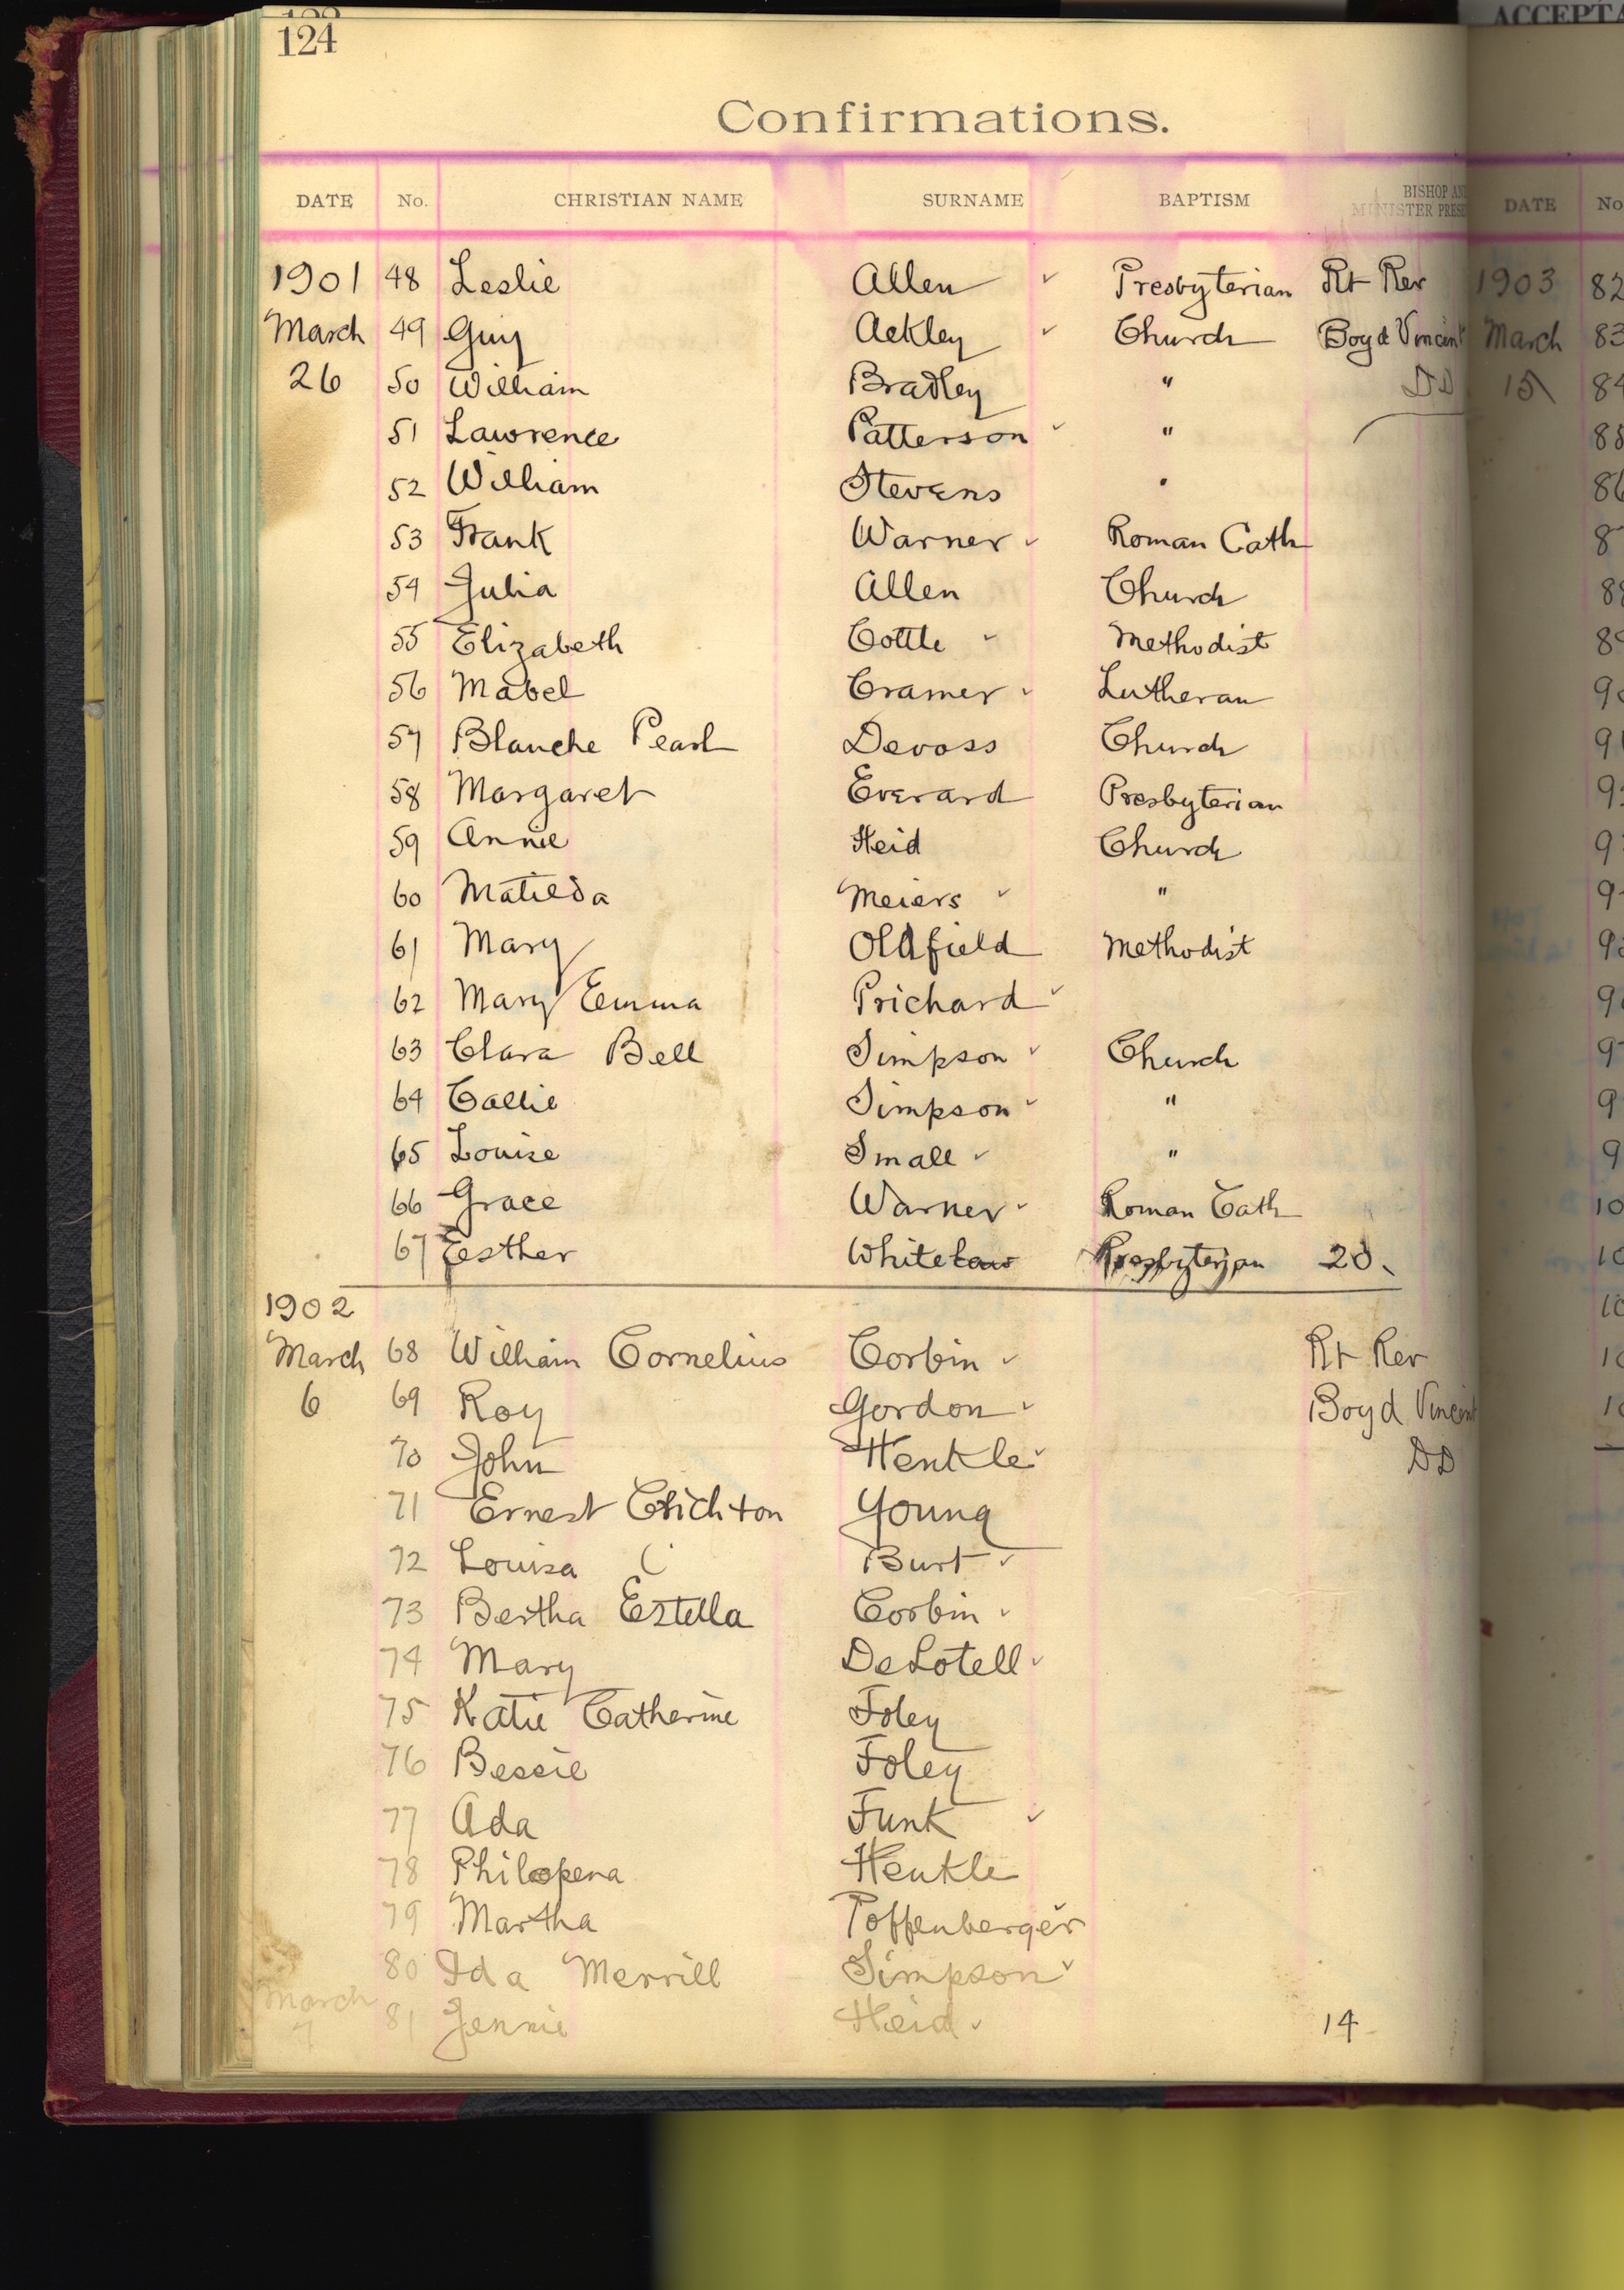 124
ACCEPTA
Confirmations.
DATE No. CHRISTIAN NAME SURNAME BAPTISM BISHOP AN MINISTER PRESE DATE No
1901 48 Leslie Allen ✓ Presbyterian Rt Rev 1903 82
March 49 Guy Ackley ✓ Church Boyd Vincent March 83
26 50 William Bradley " DD 15 84
51 Lawrence Patterson ✓ " 85
52 William Stevens " 86
53 Frank Warner ✓ Roman Cath 8
54 Julia Allen Church 88
55 Elizabeth Cottle ✓ Methodist 89
56 Mabel Cramer ✓ Lutheran 90
57 Blanche Pearl Devoss Church 91
58 Margaret Everard Presbyterian 9
59 Annie Heid Church 9
60 Matilda Meiers ✓ " 9
61 Mary Oldfield Methodist 9
62 Mary Emma Prichard ✓ 9
63 Clara Bell Simpson ✓ Church 9
64 Callie Simpson ✓ " 9
65 Louise Small ✓ " 9
66 Grace Warner ✓ Roman Cath 10
67 Eesther Whitelaw Presbyterian 20. 10
1902 10
March 68 William Cornelius Corbin ✓ Rt Rev 10
6 69 Roy Gordon ✓ Boyd Vincent 10
70 John Henkle ✓ DD
71 Ernest Crichton Young
72 Louisa C Burt ✓
73 Bertha Estella Corbin ✓
74 Mary DeLotell ✓
75 Katie Catherine Foley
76 Bessie Foley
77 Ada Funk ✓
78 Philopena Henkle
79 Martha Poffenberger ✓
80 Ida Merrill Simpson ✓
March 81 Jennie Heid ✓ 14
7